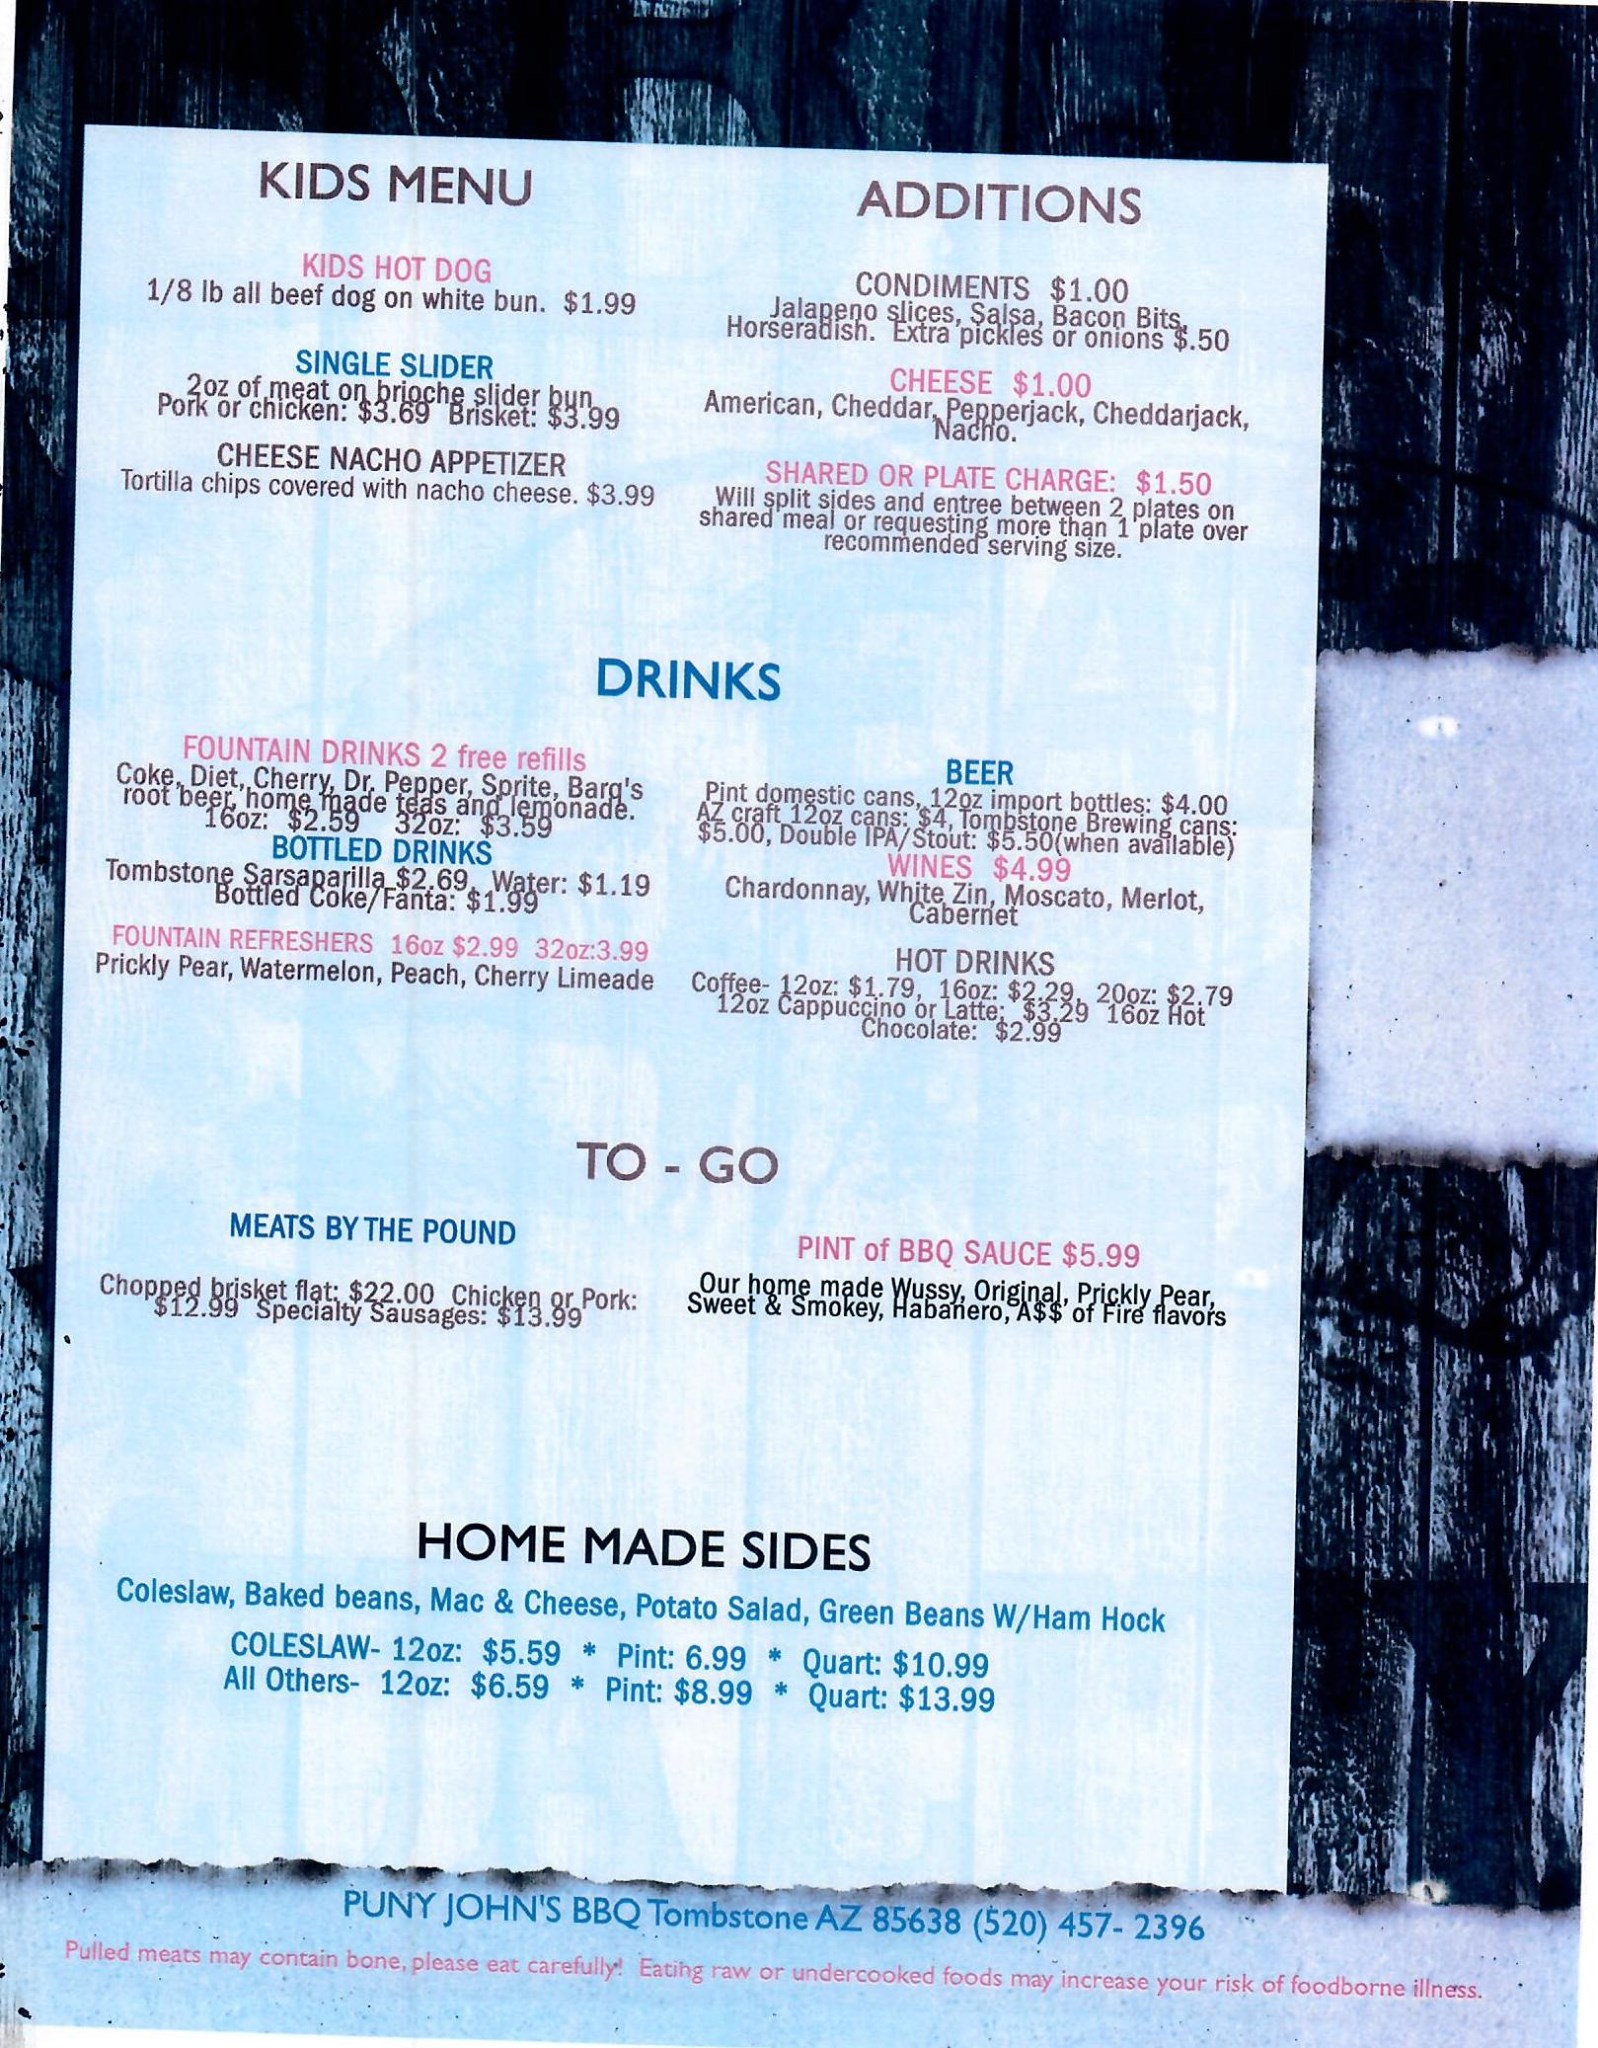 KIDS MENU
KIDS HOT DOG
1/8 lb all beef dog on white bun. $1.99
SINGLE SLIDER
2oz of meat on brioche slider bun
Pork or chicken: $3.69 Brisket: $3.99
CHEESE NACHO APPETIZER
Tortilla chips covered with nacho cheese. $3.99
ADDITIONS
CONDIMENTS $1.00
Jalapeno slices, Salsa, Bacon Bits,
Horseradish. Extra pickles or onions $.50
CHEESE $1.00
American, Cheddar, Pepperjack, Cheddarjack,
Nacho.
SHARED OR PLATE CHARGE: $1.50
Will split sides and entree between 2 plates on
shared meal or requesting more than 1 plate over
recommended serving size.
DRINKS
FOUNTAIN DRINKS 2 free refills
Coke, Diet, Cherry, Dr. Pepper, Sprite, Barq's
root beer, home made teas and lemonade.
16oz: $2.59 32oz: $3.59
BOTTLED DRINKS
Tombstone Sarsaparilla $2.69, Water: $1.19
Bottled Coke/Fanta: $1.99
FOUNTAIN REFRESHERS 16oz $2.99 32oz:3.99
Prickly Pear, Watermelon, Peach, Cherry Limeade
BEER
Pint domestic cans, 12oz import bottles: $4.00
AZ craft 12oz cans: $4, Tombstone Brewing cans:
$5.00, Double IPA/Stout: $5.50(when available)
WINES $4.99
Chardonnay, White Zin, Moscato, Merlot,
Cabernet
HOT DRINKS
Coffee- 12oz: $1.79, 16oz: $2.29, 20oz: $2.79
12oz Cappuccino or Latte: $3.29 16oz Hot
Chocolate: $2.99
TO - GO
MEATS BY THE POUND
Chopped brisket flat: $22.00 Chicken or Pork:
$12.99 Specialty Sausages: $13.99
PINT of BBQ SAUCE $5.99
Our home made Wussy, Original, Prickly Pear,
Sweet & Smokey, Habanero, A$$ of Fire flavors
HOME MADE SIDES
Coleslaw, Baked beans, Mac & Cheese, Potato Salad, Green Beans W/Ham Hock
COLESLAW- 12oz: $5.59 * Pint: 6.99 * Quart: $10.99
All Others- 12oz: $6.59 * Pint: $8.99 * Quart: $13.99
PUNY JOHN'S BBQ Tombstone AZ 85638 (520) 457- 2396
Pulled meats may contain bone, please eat carefully! Eating raw or undercooked foods may increase your risk of foodborne illness.